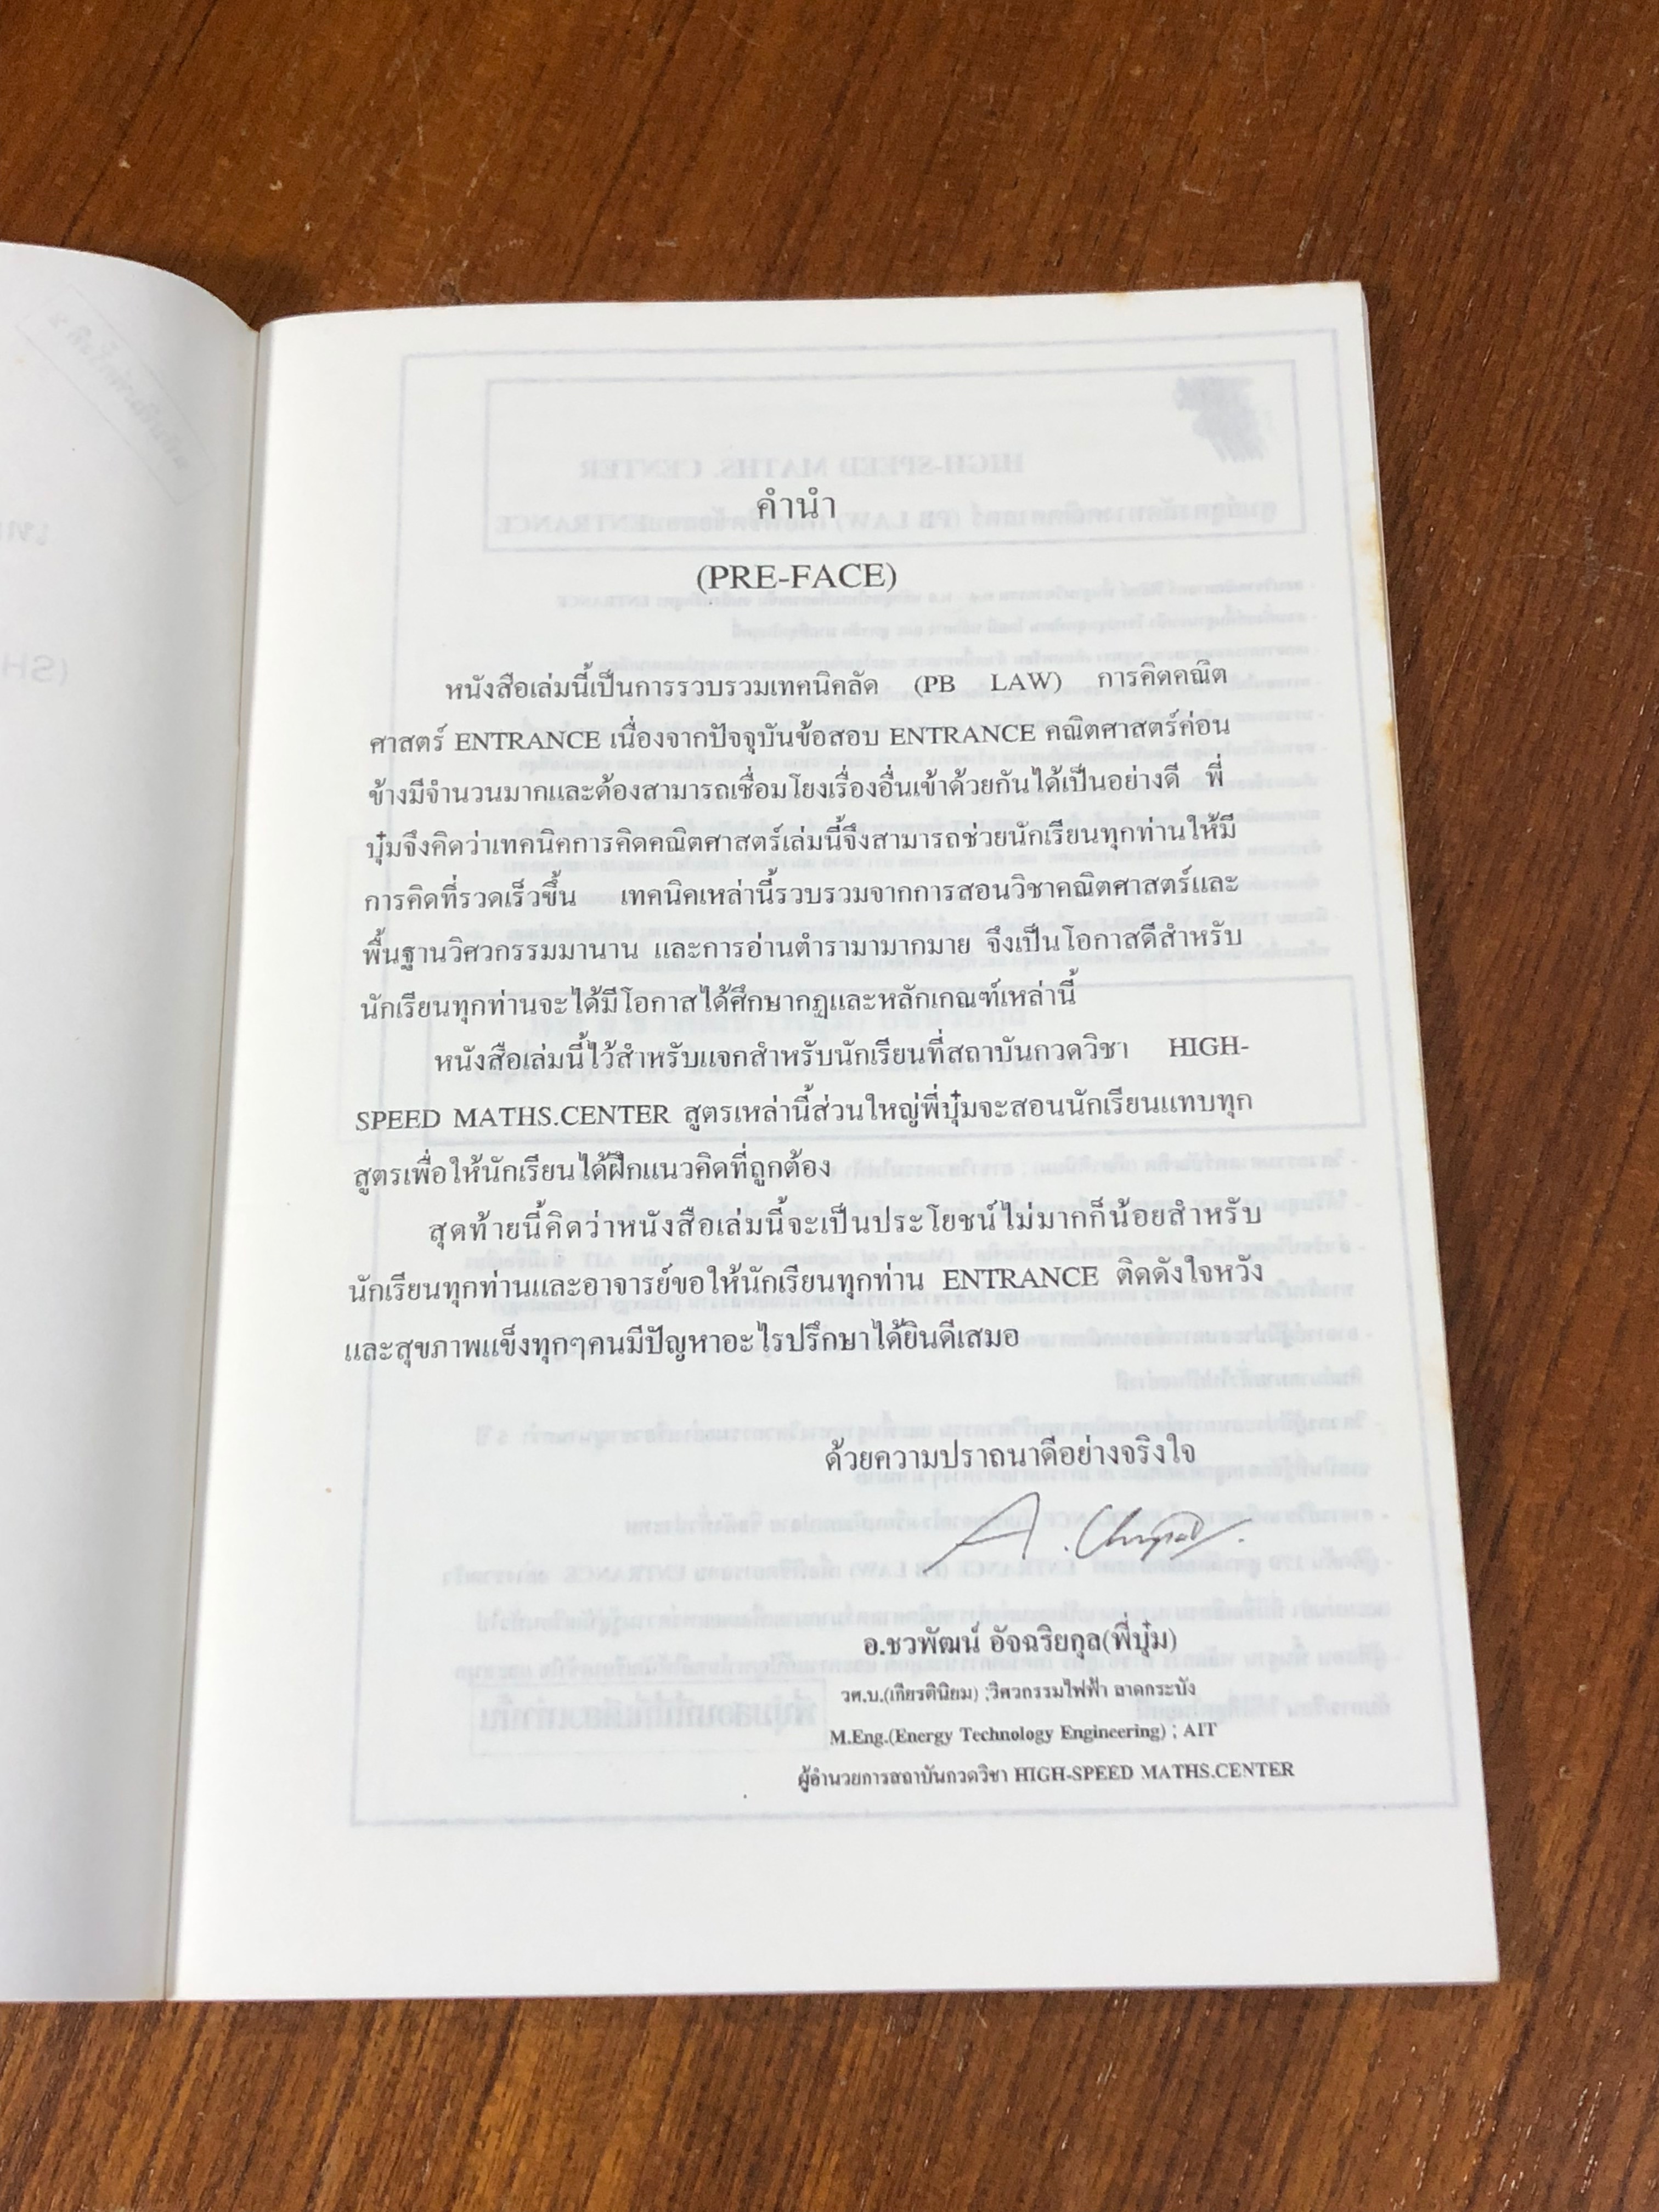 คำนำ
(PRE-FACE)
หนังสือเล่มนี้เป็นการรวบรวมเทคนิคลัด (PB LAW) การคิดคณิต
ศาสตร์ ENTRANCE เนื่องจากปัจจุบันข้อสอบ ENTRANCE คณิตศาสตร์ค่อน
ข้างมีจำนวนมากและต้องสามารถเชื่อมโยงเรื่องอื่นเข้าด้วยกันได้เป็นอย่างดี พี่
บุ๋มจึงคิดว่าเทคนิคการคิดคณิตศาสตร์เล่มนี้จึงสามารถช่วยนักเรียนทุกท่านให้มี
การคิดที่รวดเร็วขึ้น เทคนิคเหล่านี้รวบรวมจากการสอนวิชาคณิตศาสตร์และ
พื้นฐานวิศวกรรมมานาน และการอ่านตำรามามากมาย จึงเป็นโอกาสดีสำหรับ
นักเรียนทุกท่านจะได้มีโอกาสได้ศึกษากฏและหลักเกณฑ์เหล่านี้
หนังสือเล่มนี้ไว้สำหรับแจกสำหรับนักเรียนที่สถาบันกวดวิชา HIGH-
SPEED MATHS.CENTER สูตรเหล่านี้ส่วนใหญ่พี่บุ๋มจะสอนนักเรียนแทบทุก
สูตรเพื่อให้นักเรียนได้ฝึกแนวคิดที่ถูกต้อง
สุดท้ายนี้คิดว่าหนังสือเล่มนี้จะเป็นประโยชน์ไม่มากก็น้อยสำหรับ
นักเรียนทุกท่านและอาจารย์ขอให้นักเรียนทุกท่าน ENTRANCE ติดดังใจหวัง
และสุขภาพแข็งทุกๆคนมีปัญหาอะไรปรึกษาได้ยินดีเสมอ
ด้วยความปราถนาดีอย่างจริงใจ
อ.ชวพัฒน์ อัจฉริยกุล(พี่บุ๋ม)
วศ.บ.(เกียรตินิยม) ;วิศวกรรมไฟฟ้า ลาดกระบัง
M.Eng.(Energy Technology Engineering) ; AIT
ผู้อำนวยการสถาบันกวดวิชา HIGH-SPEED MATHS.CENTER